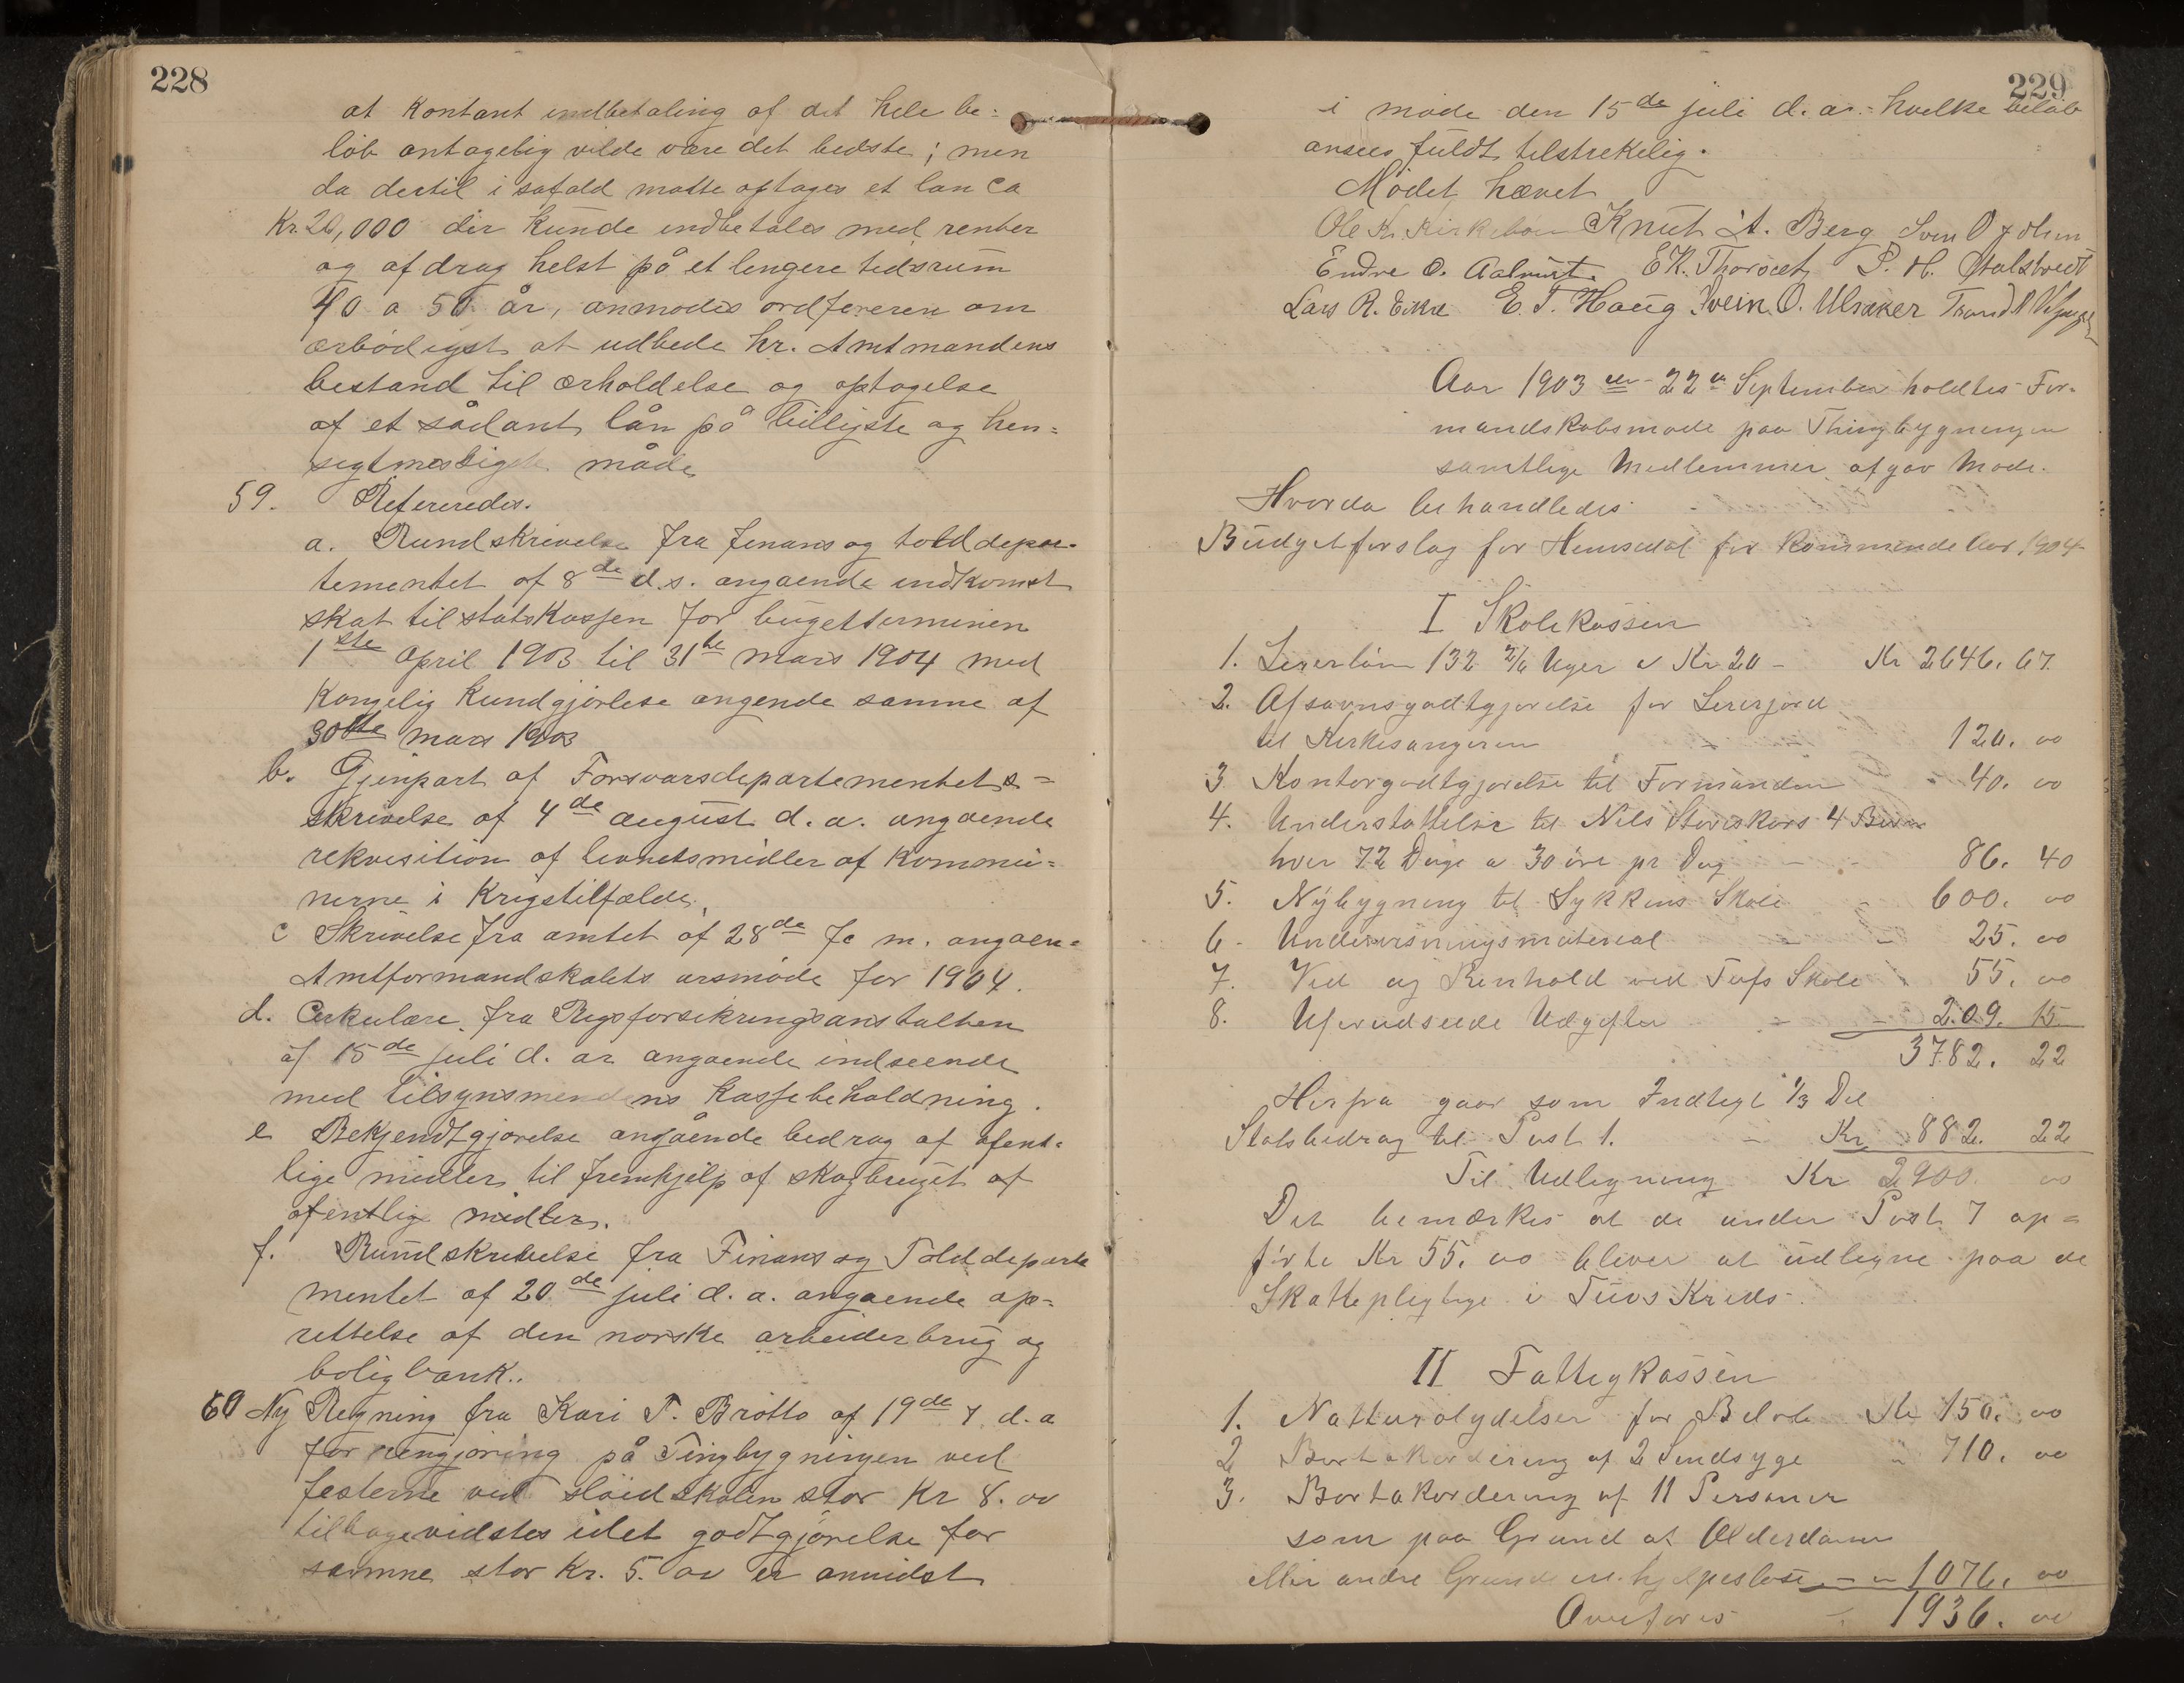 228
at Kontant indbetaling af det hele be:
løb antagelig vilde være det bedste; men
da dertil i safald matte optages et lan Ca
Kr. 20,000 der kunde indbetales med renter
og afdrag helst på et lengere tidsrum
40 a 50 år, anmodes ordføreren om
ærbødigst at udbede hr. Amtmandens
bestand til ærholdelse og optagelse
af et sådant lån på billigste og hen=
segtmessigste måde
59. Refereredes.
a. Rundskrivelse fra finans og tolddepar-
tementet af 8de d.s. angaende indkomst
skat til statskassen for bugetterminen
1ste April 1903 til 31te mars 1904 med
Kongelig Kundgjørlese angende samme af
30tte mars 1903
b. Gjenpart af Forsvarsdepartementets=
skrivelse af 4de august d. a. angaende
rekvisition af levnetsmidler af Kommu=
nerne i Krigstilfælde.
c Skrivelse fra amtet af 28de f. m. angaen=
Amtformandskabets arsmøde for 1904.
d. Cirkulære fra Rigsforsikringsanstalten
af 15de juli d. ar angaende indseende
med tilsynsmendens Kassebeholdning.
e Bekjendtgjørelse angående bedrag af ofent=
lige midler til fremhjelp af skogbruget af
ofentlige midler.
f. Rundskrivelse fra Finans og Tolddeparte
mentet af 20de juli d. a. angaende op=
rettelse af den norske arbeiderbrug og
boligbank..
60 Ny Regning fra Kari T. Brøtto af 19de 7 d. a
for rengjøring på Tingbygningen ved
festerne ved sløidskolen stor Kr 8. oo
tilbagevidstes idet godtgjørelse for
samme stor Kr. 5. oo er anvidst
229
i møde den 15de juli d. ar. hvilke beløb
ansees fuldt tilstrekelig.
Mødet hævet
Ole Kr. Kirkebøen Knut A. Berg Sven O
Endre O. Aalrust. E K. Thorset P. H. Ulsaker
Lars R. Eikre E. T. Haug Svein O. Ulsaker Trond
Aar 1903 den 22de September holdtes For-
mandskabsmøde paa Thingbygningen
samtlige Medlemmer afgav Møde.
Hvorda behandledes
Budgetforslag for Hemsedal for kommende Aar 1904
I Skolekassen
1. Lererløn 132 2/6 Uger a Kr 20 - Kr 2646. 67
2. Afsavnsgodtgjørelse for Lererjord
til Kirkesangeren 120. oo
3 Kontorgodtgjørelse til Formanden 40. oo
4. Understøttelse til Nils Storeskars 4 Børn
hver 72 Dage a 30 øre pr Dag 86. 40
5. Nybygning til Lykkens Skole 600. oo
6- Undervisningsmaterial 25. oo
7. Ved og Renhold ved Tufs Skole 55. oo
8. Uforudseede Udgifter 209. 15
3782. 22
Herfra gaar som Indtegt 1/3 Del
Statsbedrag til Post 1. Kr 882. 22
Til Udligning Kr 2900. oo
Det bemærkes at de under Post 7 op=
førte Kr 55. oo bliver at udligne paa de
Skattepligtige i Tuvs Kreds
II Fattigkassen
1. Natturalydelser for Beløb Kr 150. oo
2 Bortakordering af 2 Sindsyge " 710. oo
3. Bortakordering af 11 Personer
som paa Grund af Alderdom
eller andre Grunde er hjelpesløse - " 1076. oo
Overføres 1936. oo